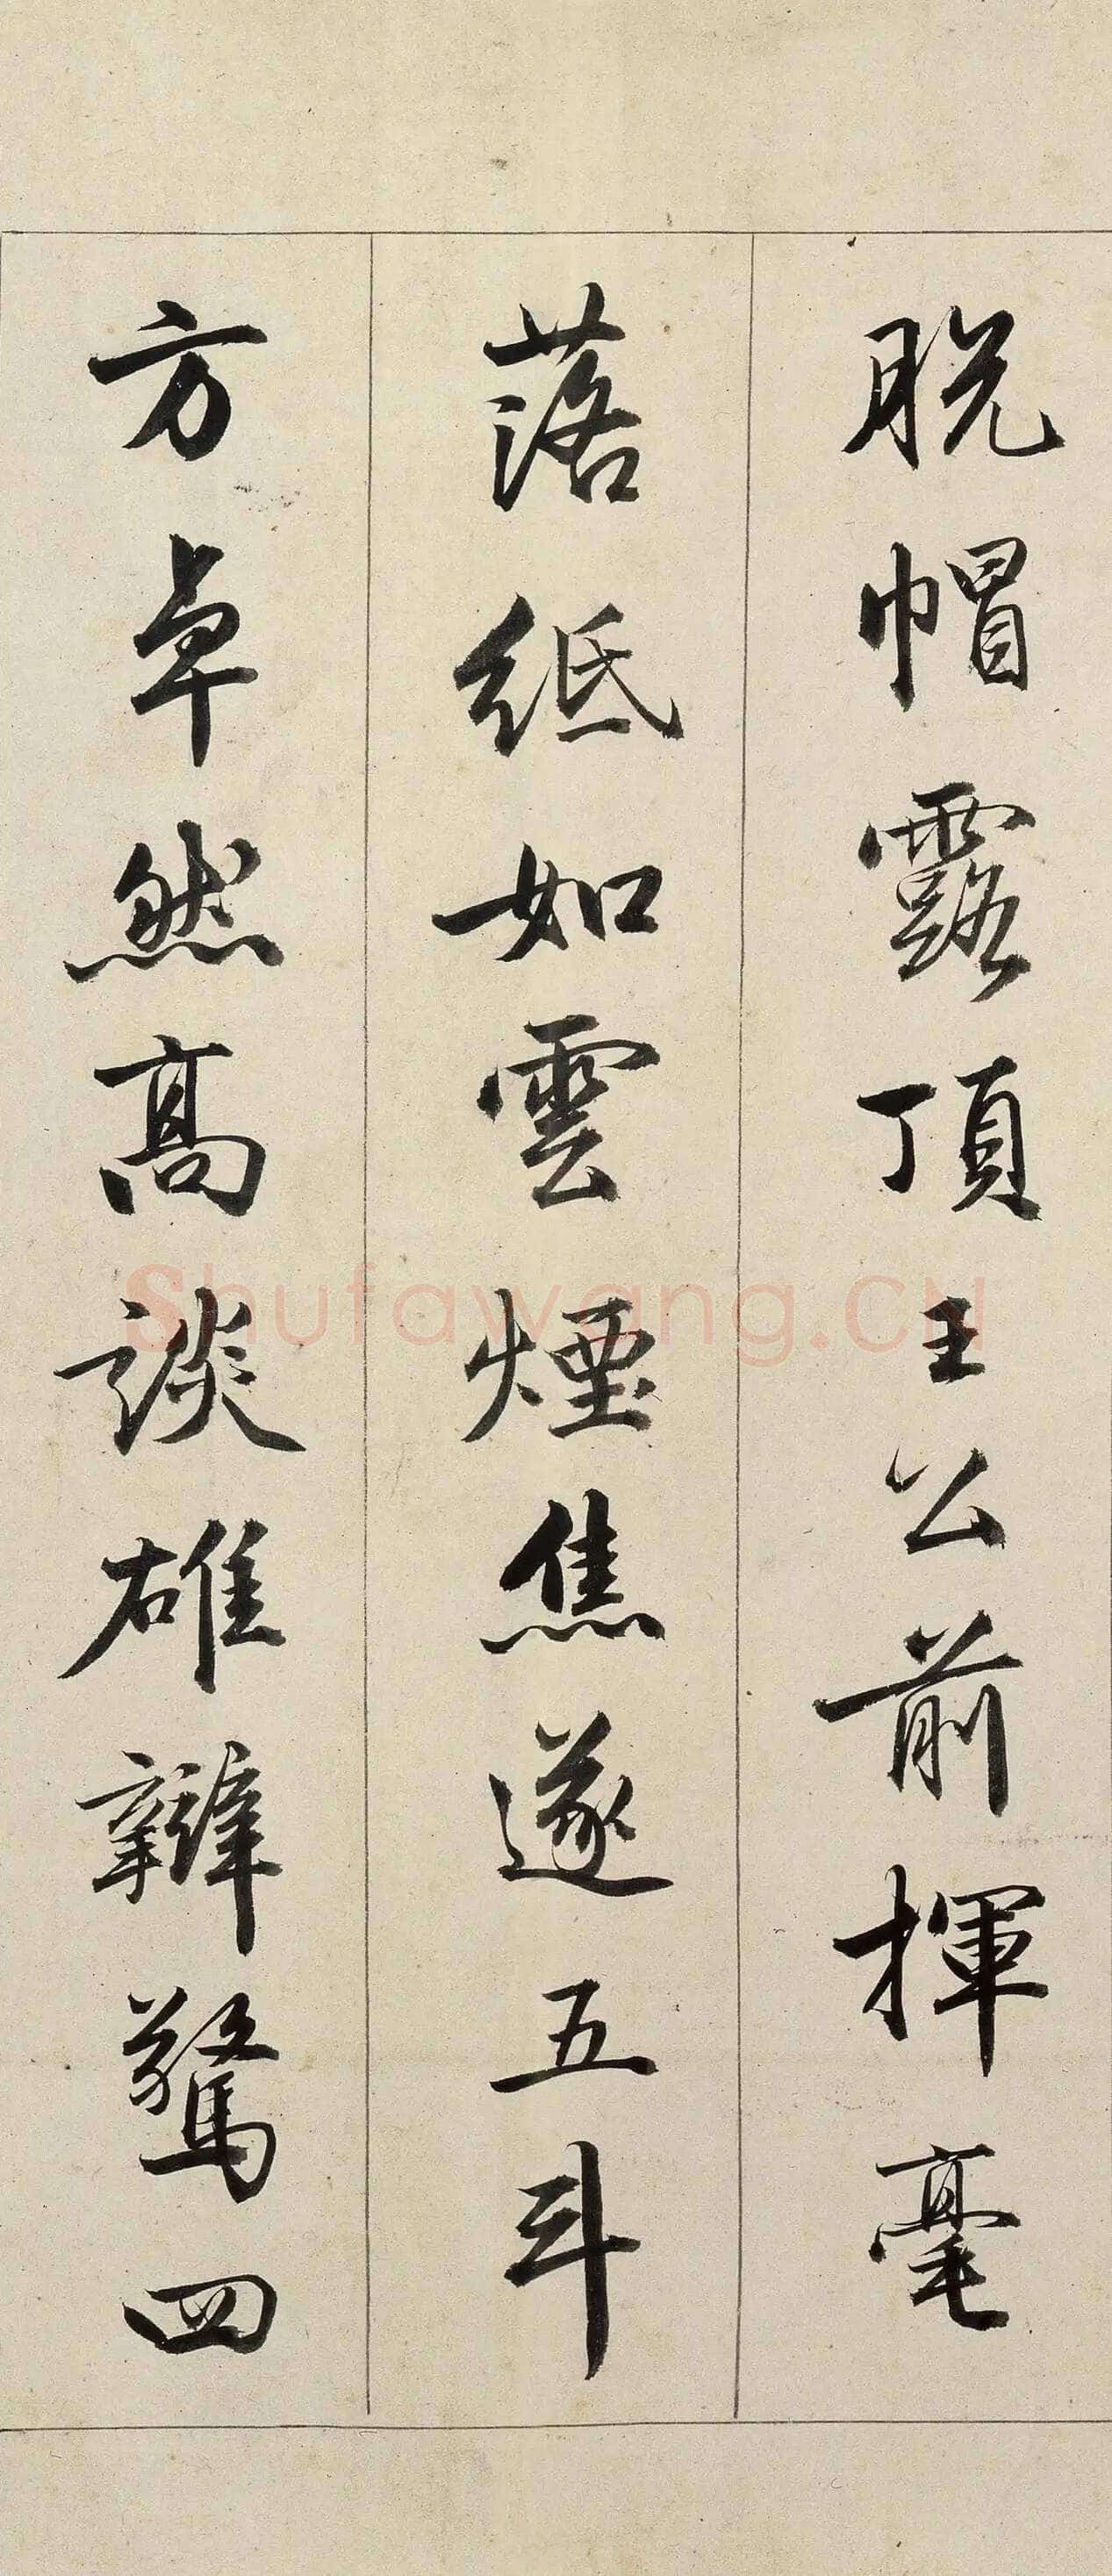 脱帽露頂王公前揮毫
落紙如雲煙焦遂五斗
方卓然高談雄辯驚四
Shufawang.CN